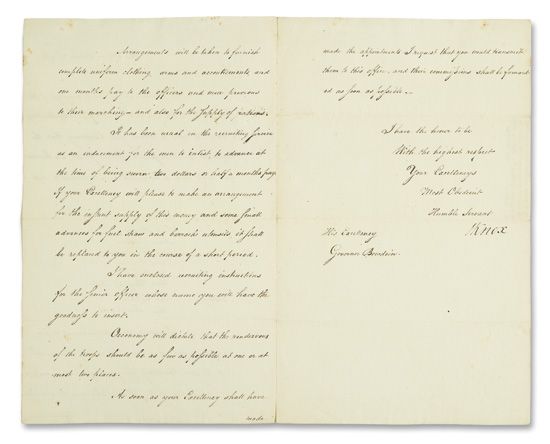 Arrangements will be taken to furnish
complete uniform clothing arms and accoutrements and
one months pay to the officers and men previous
to their marching – and also for the supply of rations.
It has been usual in the recruiting service
as an inducement for the men to enlist to advance at
the time of being sworn two dollars or half a months pay
If your Excellency will please to made an arrangement
for the instant supply of this money and some small
advances for fuel straw and barrack utensils it shall
be replaced to you in the course of a short period.
I have enclosed recruiting instructions
for the senior officer whose name you will have the
goodness to insert.
Oeconomy will dictate that the rendezvous
of the troops should be as few as possible at one or at
most two places.
As soon as your Excellency shall have
made
made the appointments I request that you would transmit
them to this office, and their commissions shall be forward
ed as soon as possible –
I have the honor to be
With the highest respect
Your Excellencys
Most Obedient
Humble Servant
HKnox
His Excellency
Governor Bowdoin